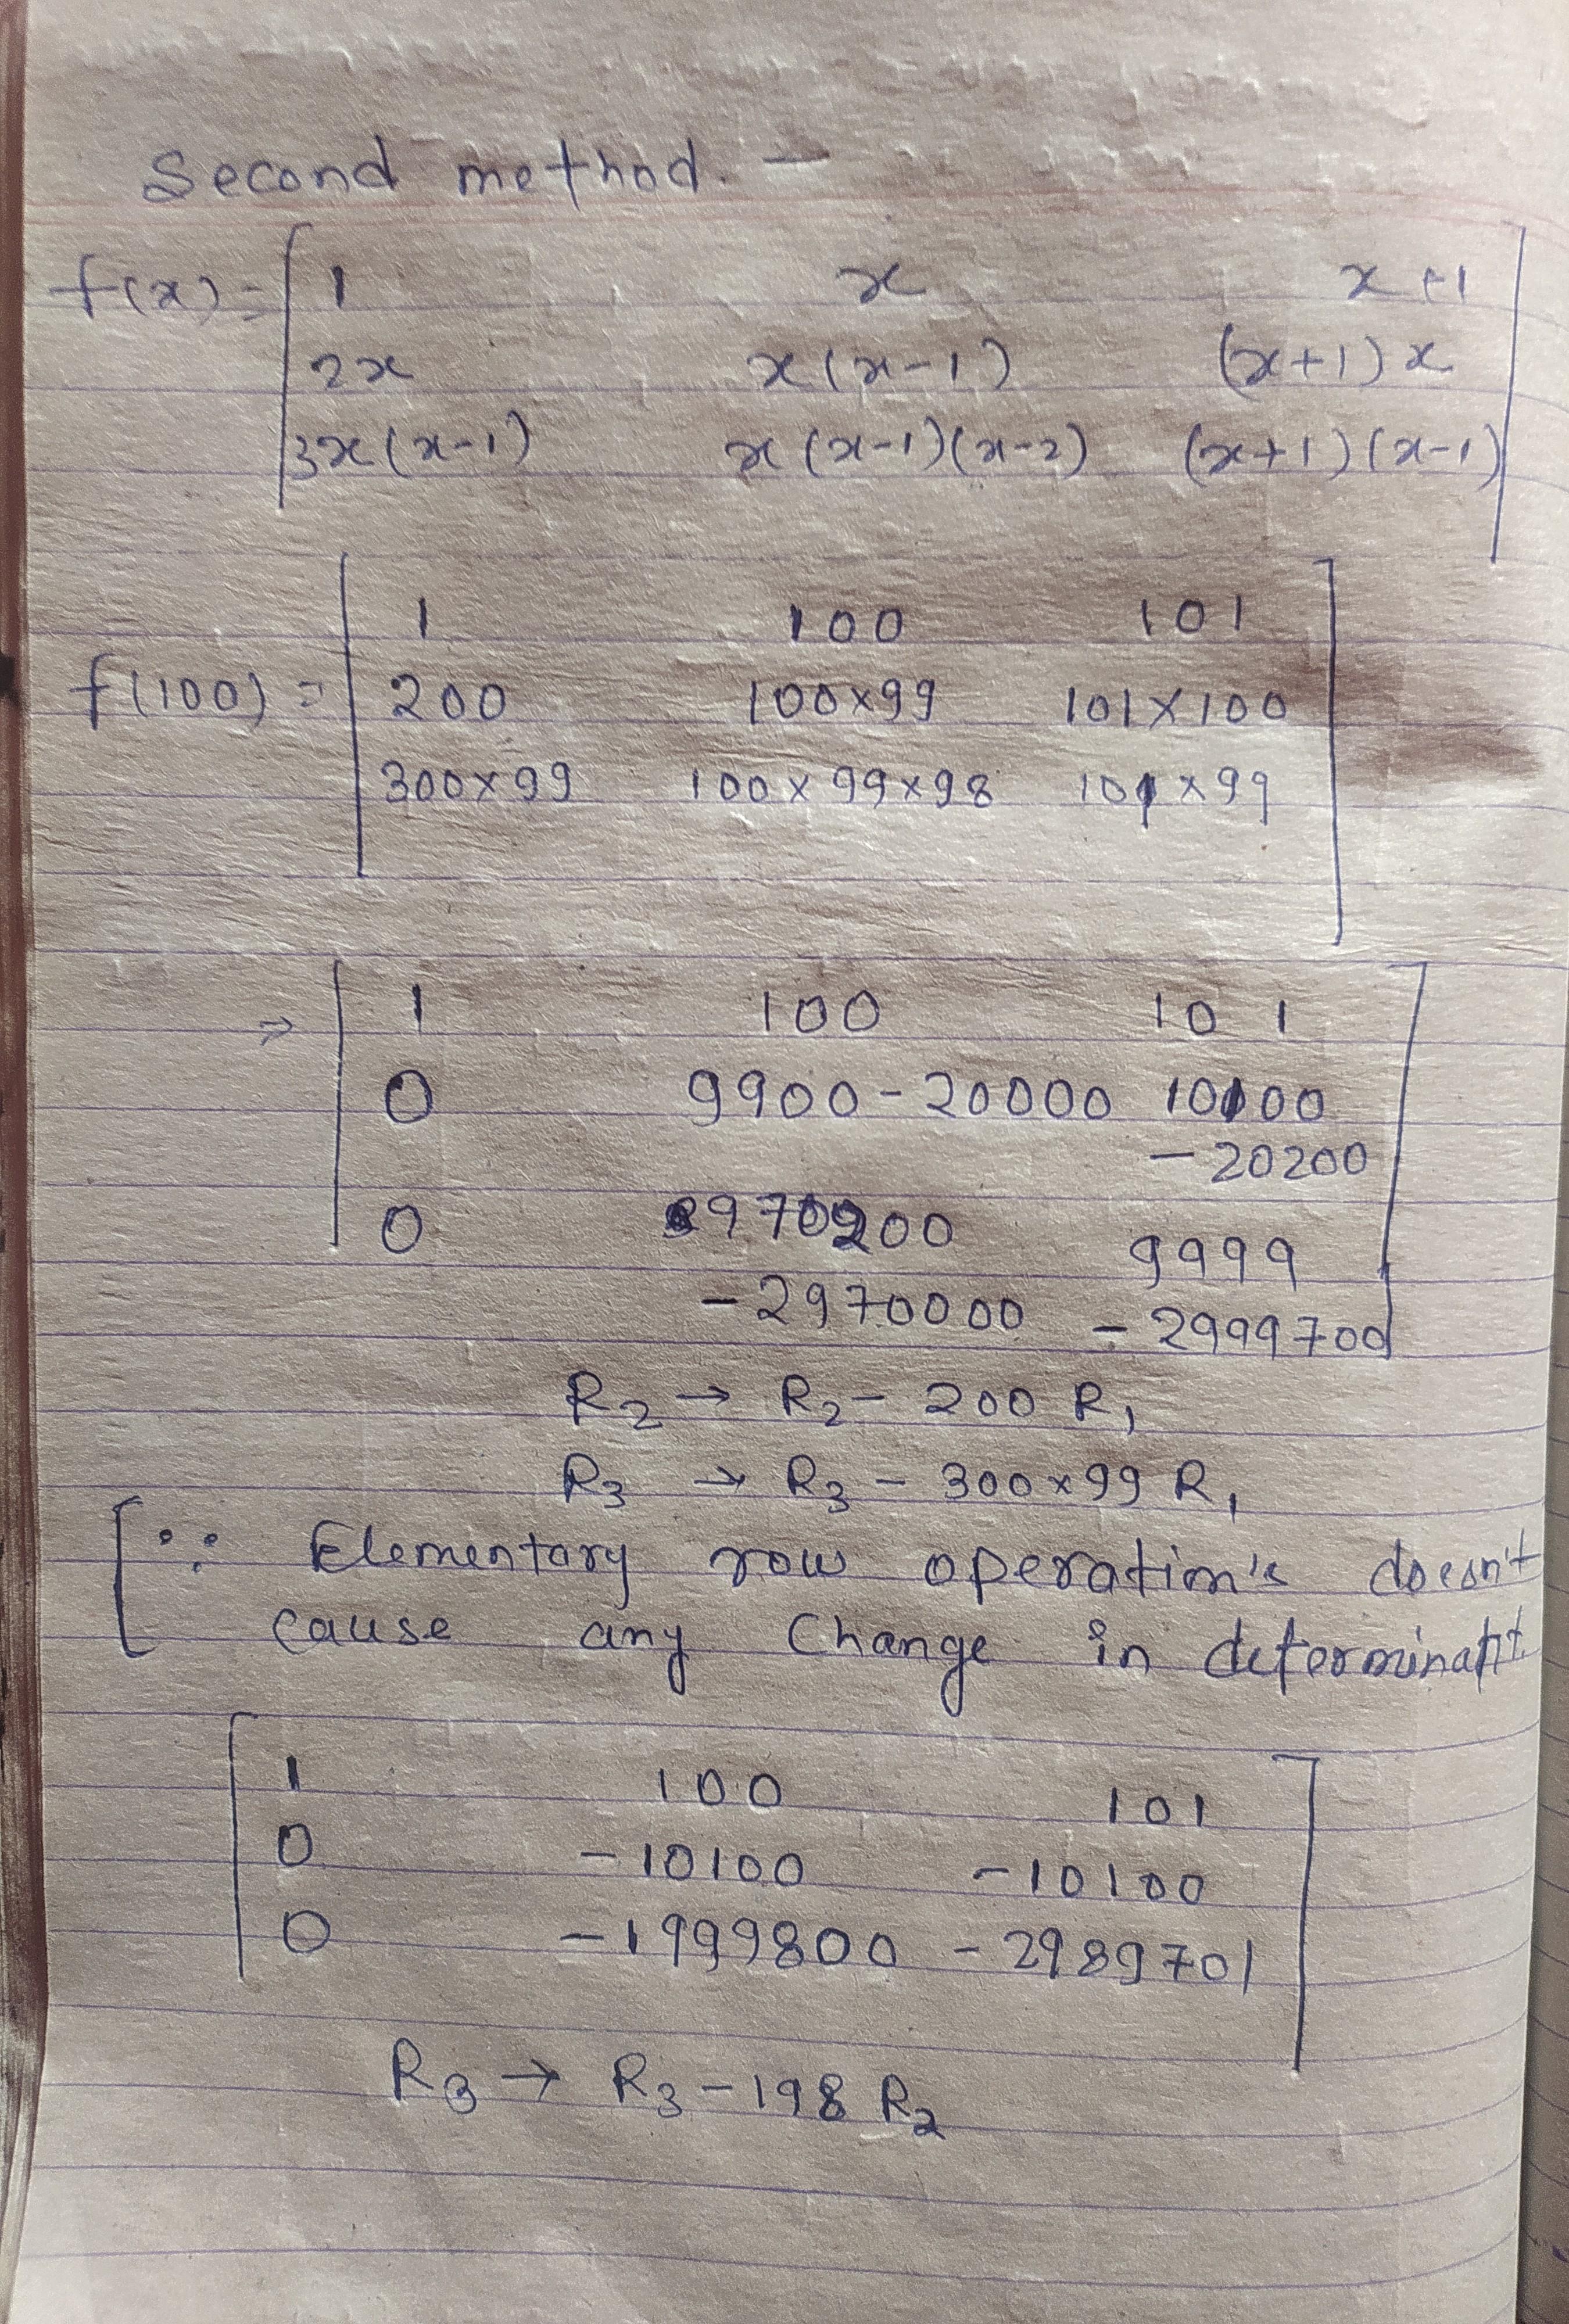 Second method. —
f(x) = | 1 x x+1 |
| 2x x(x-1) (x+1)x |
| 3x(x-1) x(x-1)(x-2) (x+1)(x-1) |
| 1 100 101 |
f(100) = | 200 100×99 101×100 |
| 300×99 100×99×98 101×99 |
⇒ | 1 100 101 |
| 0 9900-20000 10100 |
-20200
| 0 970200 9999 |
-2970000 -2999700
R₂ → R₂ - 200 R₁
R₃ → R₃ - 300×99 R₁
[∵ Elementary row operation's doesn't
cause any Change in determinant.
| 1 100 101 |
| 0 -10100 -10100 |
| 0 -1999800 -2989701 |
R₃ → R₃ - 198 R₂